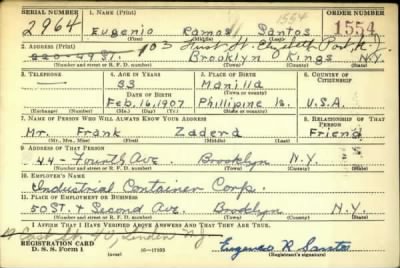 SERIAL NUMBER 1. NAME (Print) 1554 ORDER NUMBER
2964 Eugenio Ramos Santos 1554
(First) (Middle) (Last)
2. ADDRESS (Print) 103 First St. Elizabeth N.J.
49 St. Brooklyn Kings N.Y.
(Number and street or R. F. D. number) (Town) (County) (State)
3. TELEPHONE 4. AGE IN YEARS 5. PLACE OF BIRTH 6. COUNTRY OF CITIZENSHIP
33 Manilla
DATE OF BIRTH (Town or county)
Feb. 16, 1907 Phillipine Is. U.S.A.
(Exchange) (Number) (Mo.) (Day) (Yr.) (State or country)
7. NAME OF PERSON WHO WILL ALWAYS KNOW YOUR ADDRESS 8. RELATIONSHIP OF THAT PERSON
Mr. Frank Zadera Friend
(Mr., Mrs., Miss) (First) (Middle) (Last)
9. ADDRESS OF THAT PERSON
44 - Fourth Ave. Brooklyn N.Y.
(Number and street or R. F. D. number) (Town) (County) (State)
10. EMPLOYER'S NAME
Industrial Container Corp.
11. PLACE OF EMPLOYMENT OR BUSINESS
50 St. & Second Ave. Brooklyn N.Y.
(Number and street or R. F. D. number) (Town) (County) (State)
I AFFIRM THAT I HAVE VERIFIED ABOVE ANSWERS AND THAT THEY ARE TRUE.
Linden N.J.
REGISTRATION CARD
D. S. S. Form 1 (over) Eugenio R Santos
(Registrant's signature)